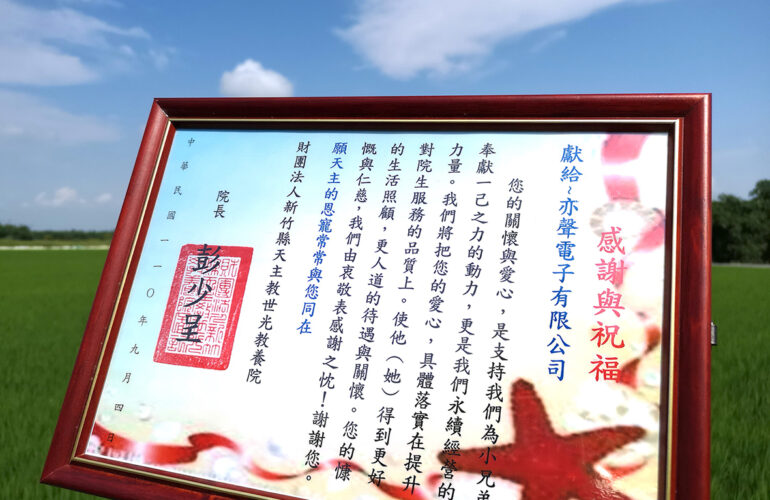 感謝與祝福
獻給~亦聲電子有限公司
您的關懷與愛心，是支持我們為小兄弟
奉獻一己之力的動力，更是我們永續經營的
力量。我們將把您的愛心，具體落實在提升
對院生服務的品質上。使他（她）得到更好
的生活照顧，更人道的待遇與關懷。您的慷
慨與仁慈，我們由衷敬表感謝之忱！謝謝您。
願天主的恩寵常常與您同在
財團法人新竹縣天主教世光教養院
院長
彭少呈
中華民國一一〇年九月四日